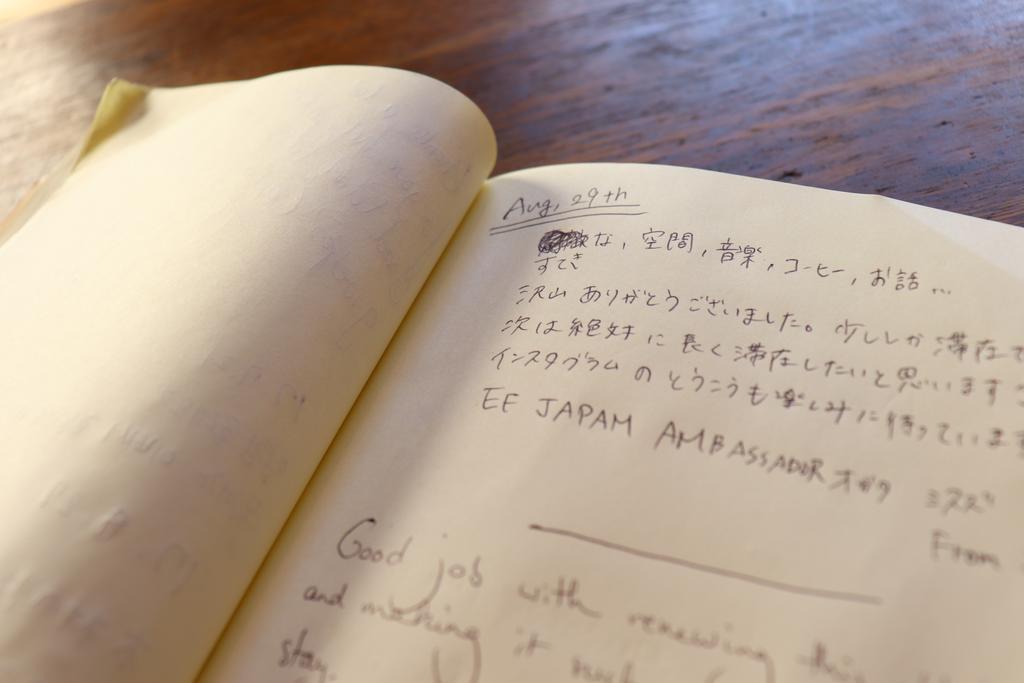 Aug, 29th
な, 空間, 音楽, コーヒー, お話...
すてき
沢山 ありがとうございました。少ししか 滞在で
次は絶対に 長く滞在したいと思います
インスタグラム の とうこうも楽しみに待っています
EF JAPAN AMBASSADOR オガタ ミスズ
From
Good job with renewing this
and making it
stay.